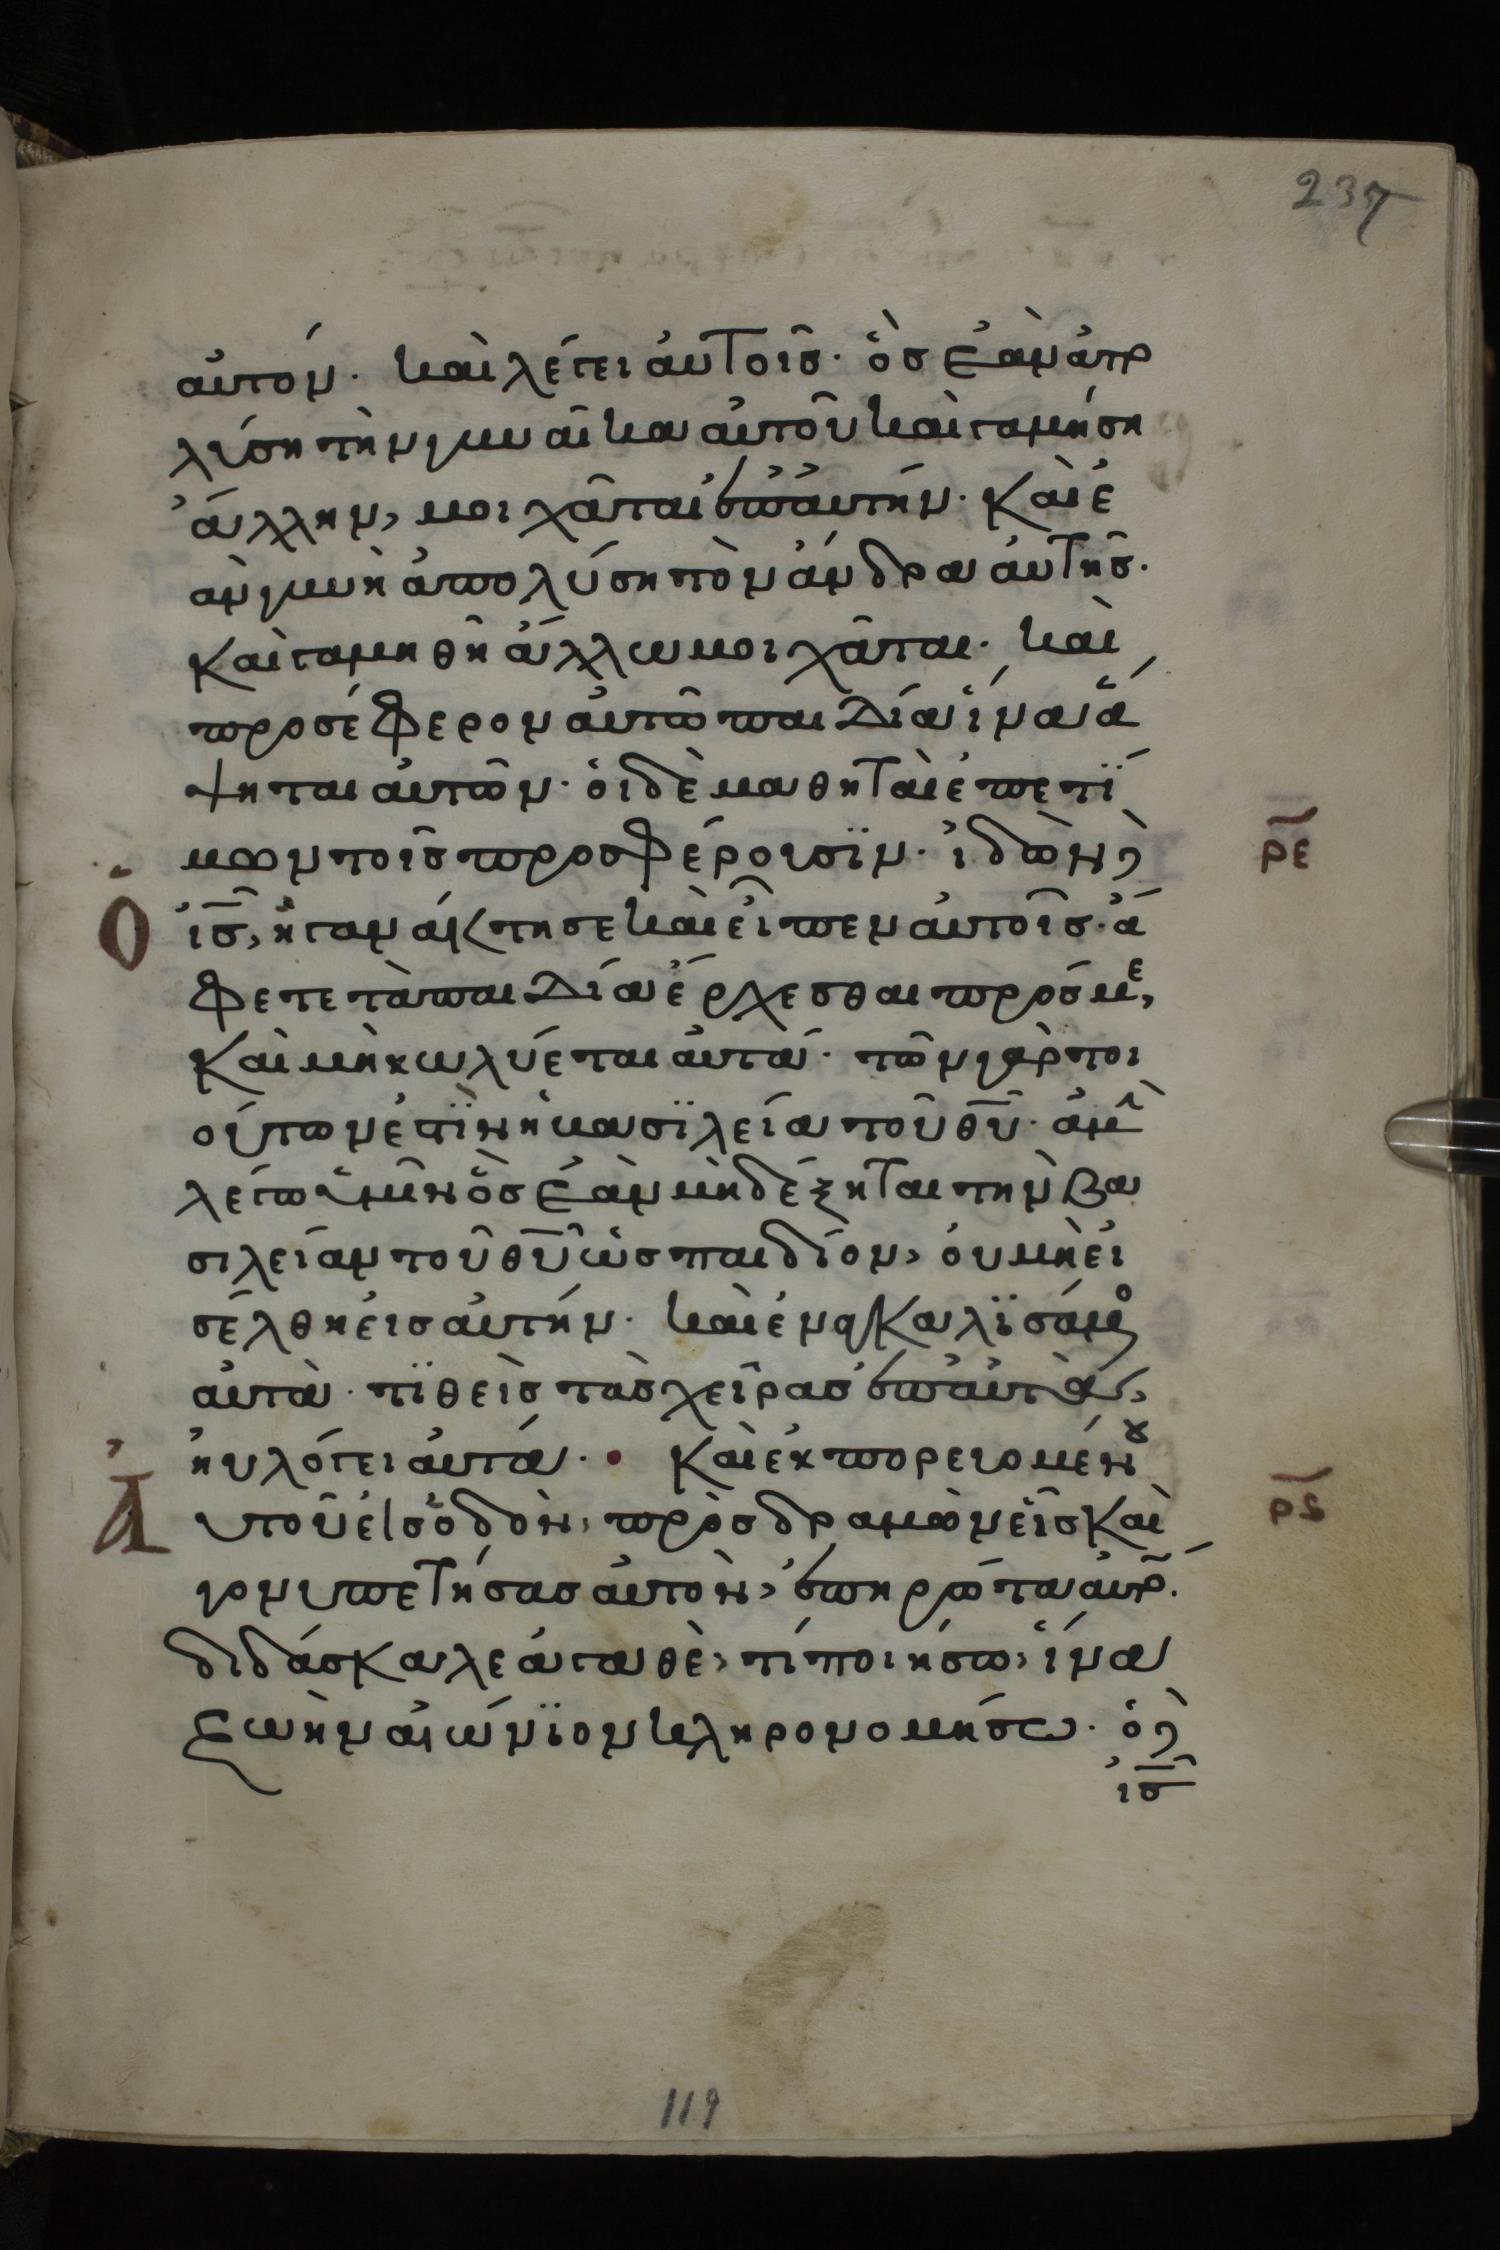 237
αὐτόν. καὶ λέγει αὐτοῖς. ὃς ἐὰν ἀπο
λύση τὴν γυναῖκα αὐτοῦ καὶ γαμήση
ἄλλην, μοιχᾶται ἐπ' αὐτήν. Καὶ ἐ
ὰν γυνὴ ἀπολύση τὸν ἄνδρα αὐτῆς.
Καὶ γαμηθῆ ἄλλω μοιχᾶται. καὶ
προσέφερον αὐτῶ παιδία ἵνα ἅ
ψηται αὐτῶν. ὁι δὲ μαθηταὶ ἐπετί
μων τοῖς προσφέρουσϊν. ἰδὼν δὲ
ρε
ὁ ἰς, ἠγανάκτησε καὶ εἶπεν αὐτοῖς. ἄ
φετε τὰ παιδία ἔρχεσθαι πρός με,
Καὶ μὴ κωλύεται αὐτά. τῶν γὰρ τοι
ούτων ἐστὶν ἡ βασϊλεία τοῦ θυ. ἀμὴν
λέγω ὑμῖν ὃς ἐὰν μὴ δέξηται τὴν βα
σιλείαν τοῦ θυ ὡς παιδίον, ὀυ μὴ ἐι
σέλθη ἐις αὐτήν. καὶ ἐναγκαλϊσάμενος
αὐτὰ. τϊθεὶς τὰς χεῖρας ἐπ' αὐτὰ,
ηυλόγει αὐτά. Καὶ ἐκπορευομένου
ρς
Αυτοῦ εἰς ὁδὸν, πρὸσδραμὼν εἷς καὶ
γονυπετήσας αὐτὸν, ἐπηρώτα αὐτόν.
διδάσκαλε ἀγαθὲ, τί ποιήσω, ἵνα
ζωὴν αἰώνϊον κληρονομήσω. ὁ δὲ
ἰς
119